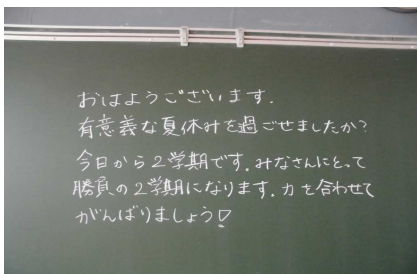 おはようございます.
有意義な夏休みを過ごせましたか?
今日から2学期です.みなさんにとって
勝負の2学期になります.力を合わせて
がんばりましょう!